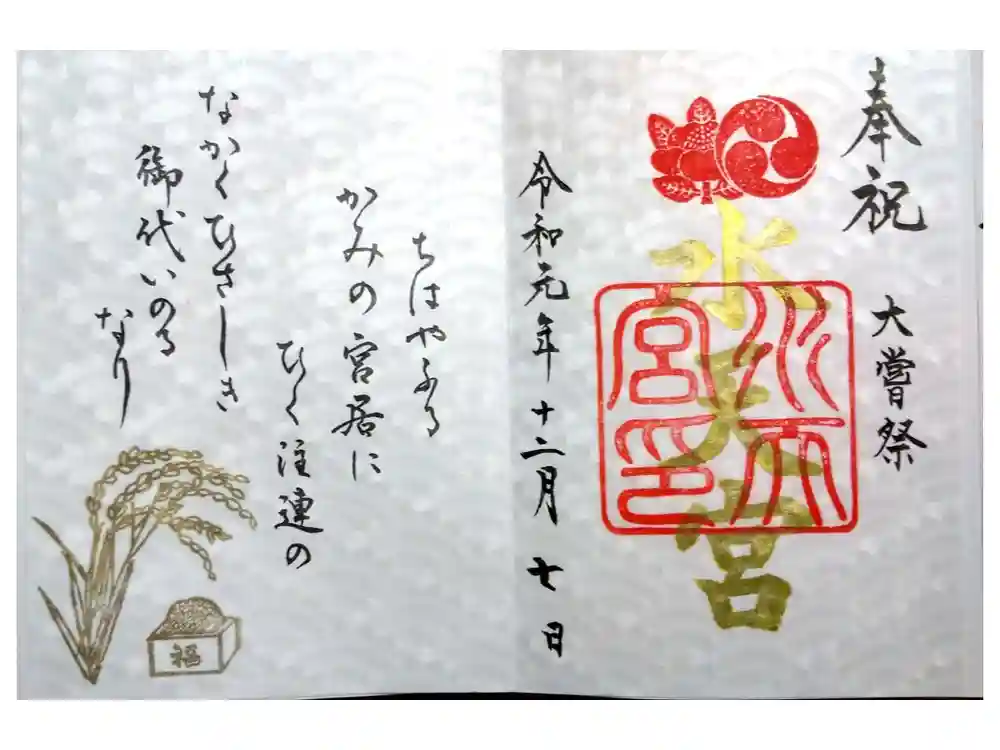 奉祝 大嘗祭
水天宮
水天宮印
令和元年十二月七日
ちはやふる
かみの宮居に
ひく注連の
なかくひさしき
御代いのる
なり
福